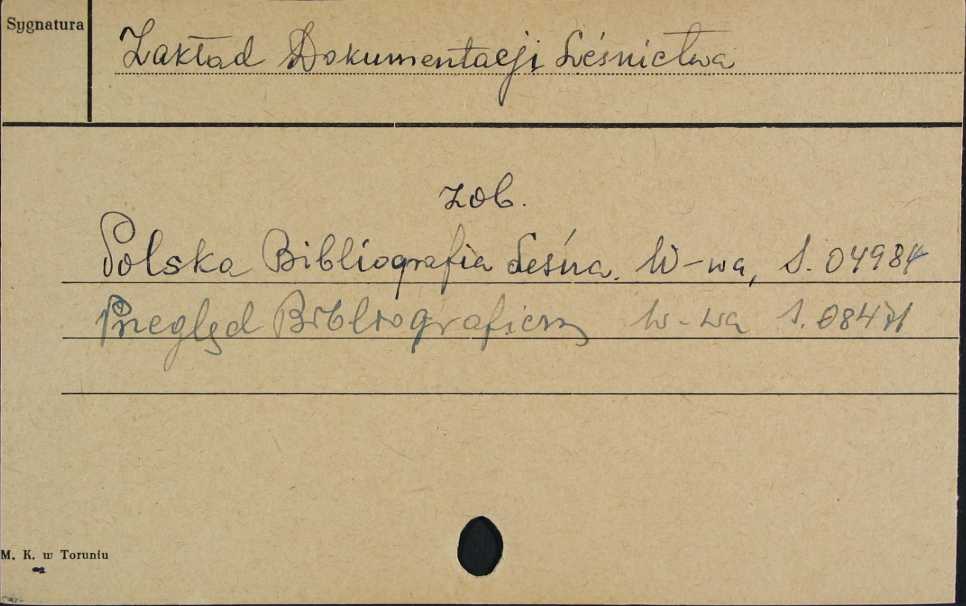 Sygnatura
Zakład Dokumentacji Leśnictwa
zob.
Polska Bibliografia Leśna. W-wa, S. 04984
Przegląd Bibliograficzny W-wa S.
M. K. w Toruniu